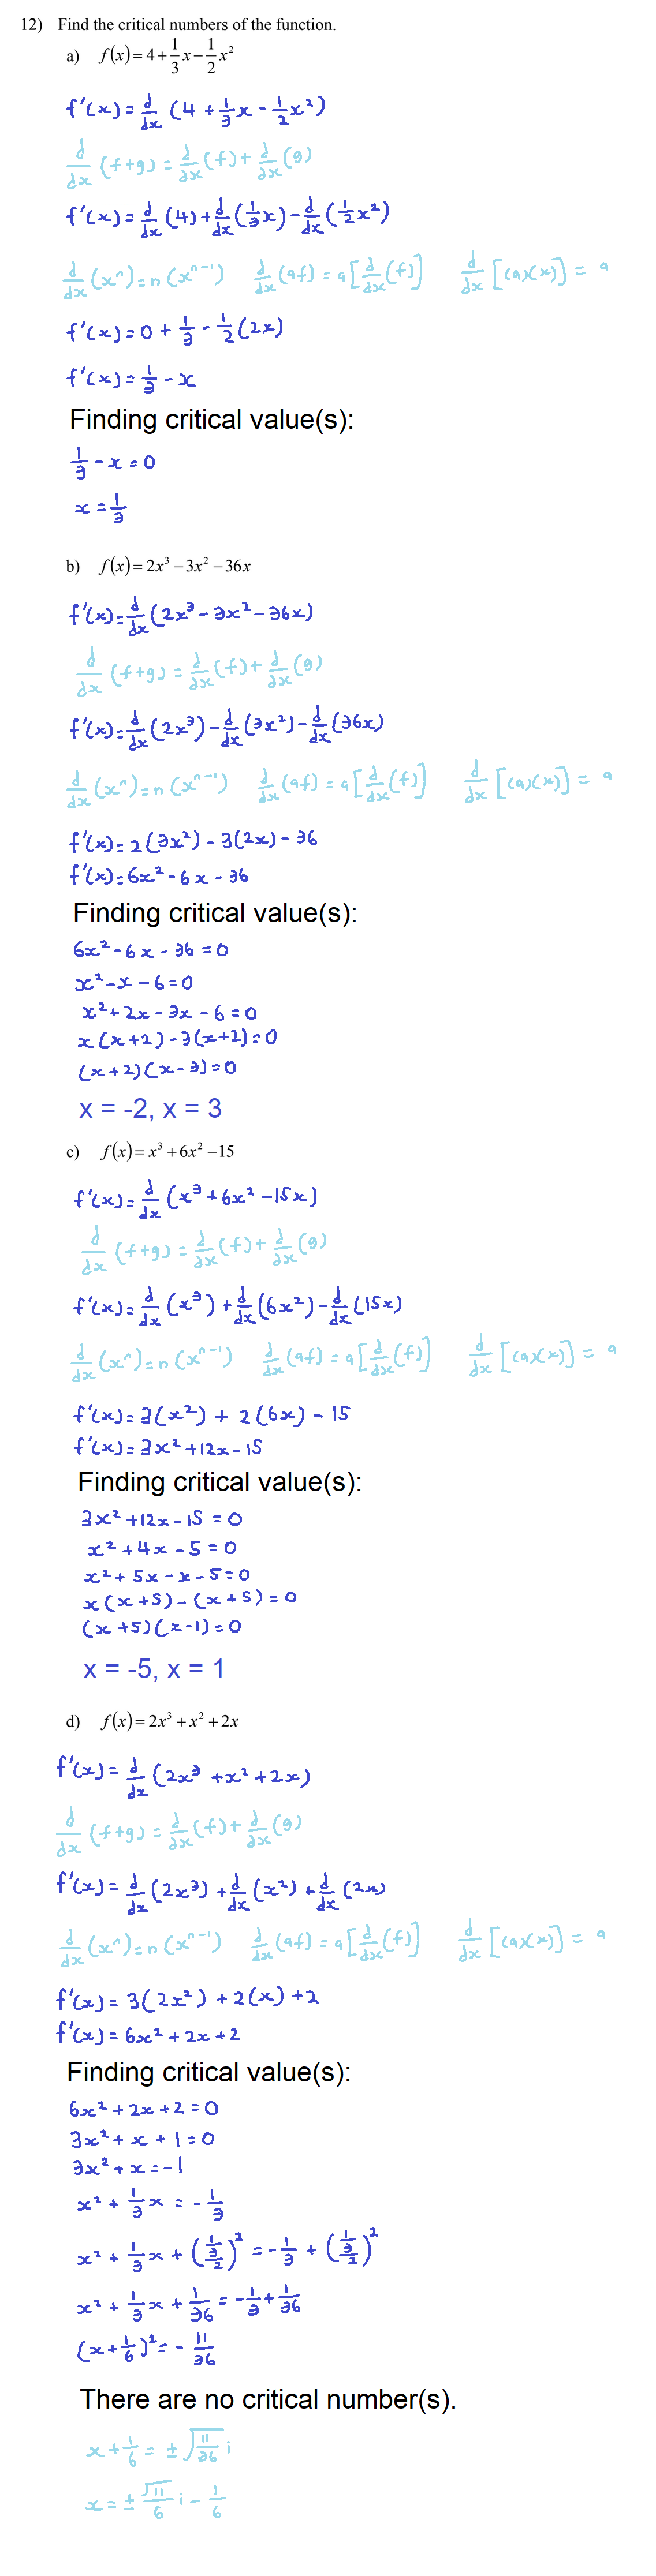 12) Find the critical numbers of the function.
a) f(x)=4+1/3x−1/2x²
f'(x)=d/dx(4+1/3x-1/2x²)
d/dx(f+g)=d/dx(f)+d/dx(g)
f'(x)=d/dx(4)+d/dx(1/3x)-d/dx(1/2x²)
d/dx(xⁿ)=n(xⁿ⁻¹) d/dx(af)=a[d/dx(f)] d/dx[(a)(x)]=a
f'(x)=0+1/3-1/2(2x)
f'(x)=1/3-x
Finding critical value(s):
1/3-x=0
x=1/3
b) f(x)=2x³−3x²−36x
f'(x)=d/dx(2x³-3x²-36x)
d/dx(f+g)=d/dx(f)+d/dx(g)
f'(x)=d/dx(2x³)-d/dx(3x²)-d/dx(36x)
d/dx(xⁿ)=n(xⁿ⁻¹) d/dx(af)=a[d/dx(f)] d/dx[(a)(x)]=a
f'(x)=2(3x²)-3(2x)-36
f'(x)=6x²-6x-36
Finding critical value(s):
6x²-6x-36=0
x²-x-6=0
x²+2x-3x-6=0
x(x+2)-3(x+2)=0
(x+2)(x-3)=0
x = -2, x = 3
c) f(x)=x³+6x²−15
f'(x)=d/dx(x³+6x²-15x)
d/dx(f+g)=d/dx(f)+d/dx(g)
f'(x)=d/dx(x³)+d/dx(6x²)-d/dx(15x)
d/dx(xⁿ)=n(xⁿ⁻¹) d/dx(af)=a[d/dx(f)] d/dx[(a)(x)]=a
f'(x)=3(x²)+2(6x)-15
f'(x)=3x²+12x-15
Finding critical value(s):
3x²+12x-15=0
x²+4x-5=0
x²+5x-x-5=0
x(x+5)-(x+5)=0
(x+5)(x-1)=0
x = -5, x = 1
d) f(x)=2x³+x²+2x
f'(x)=d/dx(2x³+x²+2x)
d/dx(f+g)=d/dx(f)+d/dx(g)
f'(x)=d/dx(2x³)+d/dx(x²)+d/dx(2x)
d/dx(xⁿ)=n(xⁿ⁻¹) d/dx(af)=a[d/dx(f)] d/dx[(a)(x)]=a
f'(x)=3(2x²)+2(x)+2
f'(x)=6x²+2x+2
Finding critical value(s):
6x²+2x+2=0
3x²+x+1=0
3x²+x=-1
x²+1/3x=-1/3
x²+1/3x+((1/3)/2)²=-1/3+((1/3)/2)²
x²+1/3x+1/36=-1/3+1/36
(x+1/6)²=-11/36
There are no critical number(s).
x+1/6=±√(11/36)i
x=±√11/6i-1/6